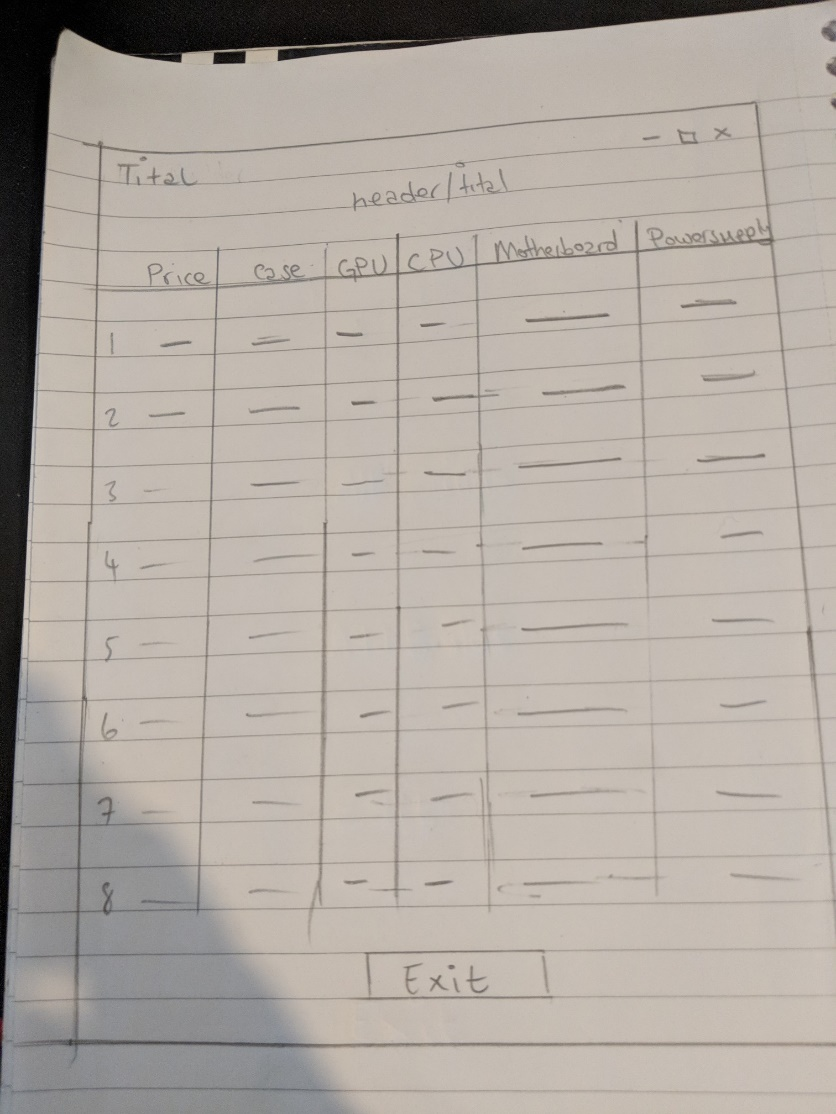 Tital
header/tital
Price Case GPU CPU Motherboard Powersupply
1
2
3
4
5
6
7
8
Exit